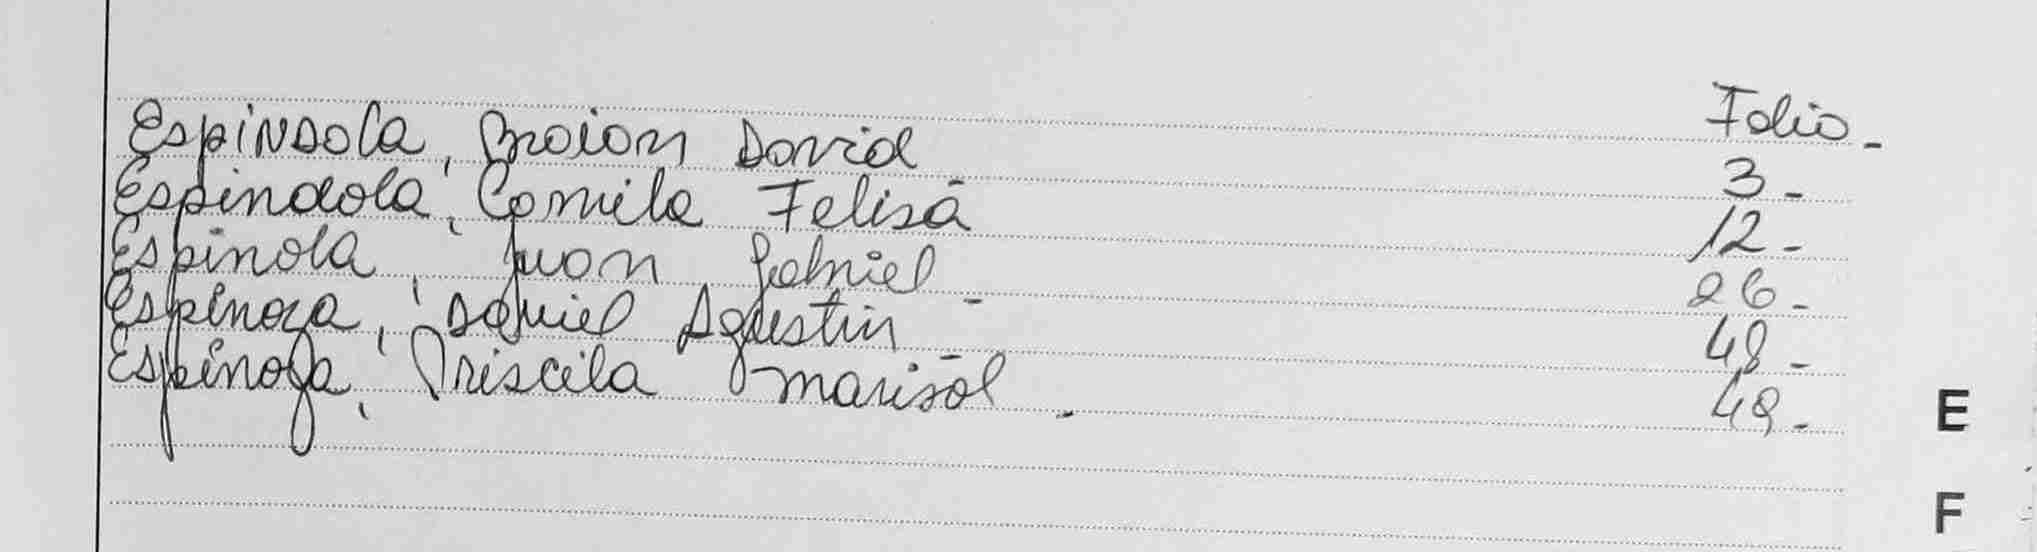 Folio -
Espindola, Braian David 3 -
Espindola, Camila Felisa 12 -
Espinola, Juan Gabriel - 26 -
Espinoza, Daniel Agustin - 48 -
Espinoza, Priscila Marisol - 49 -
E
F